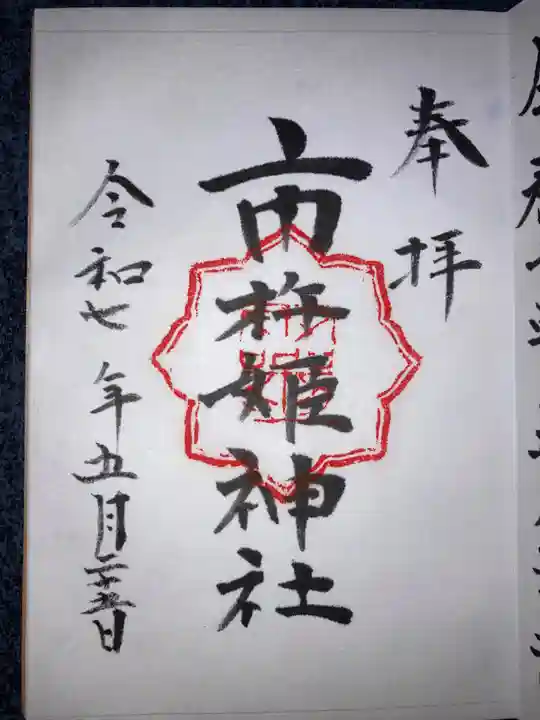 奉拝
市杵姫神社
令和七年五月二十五日